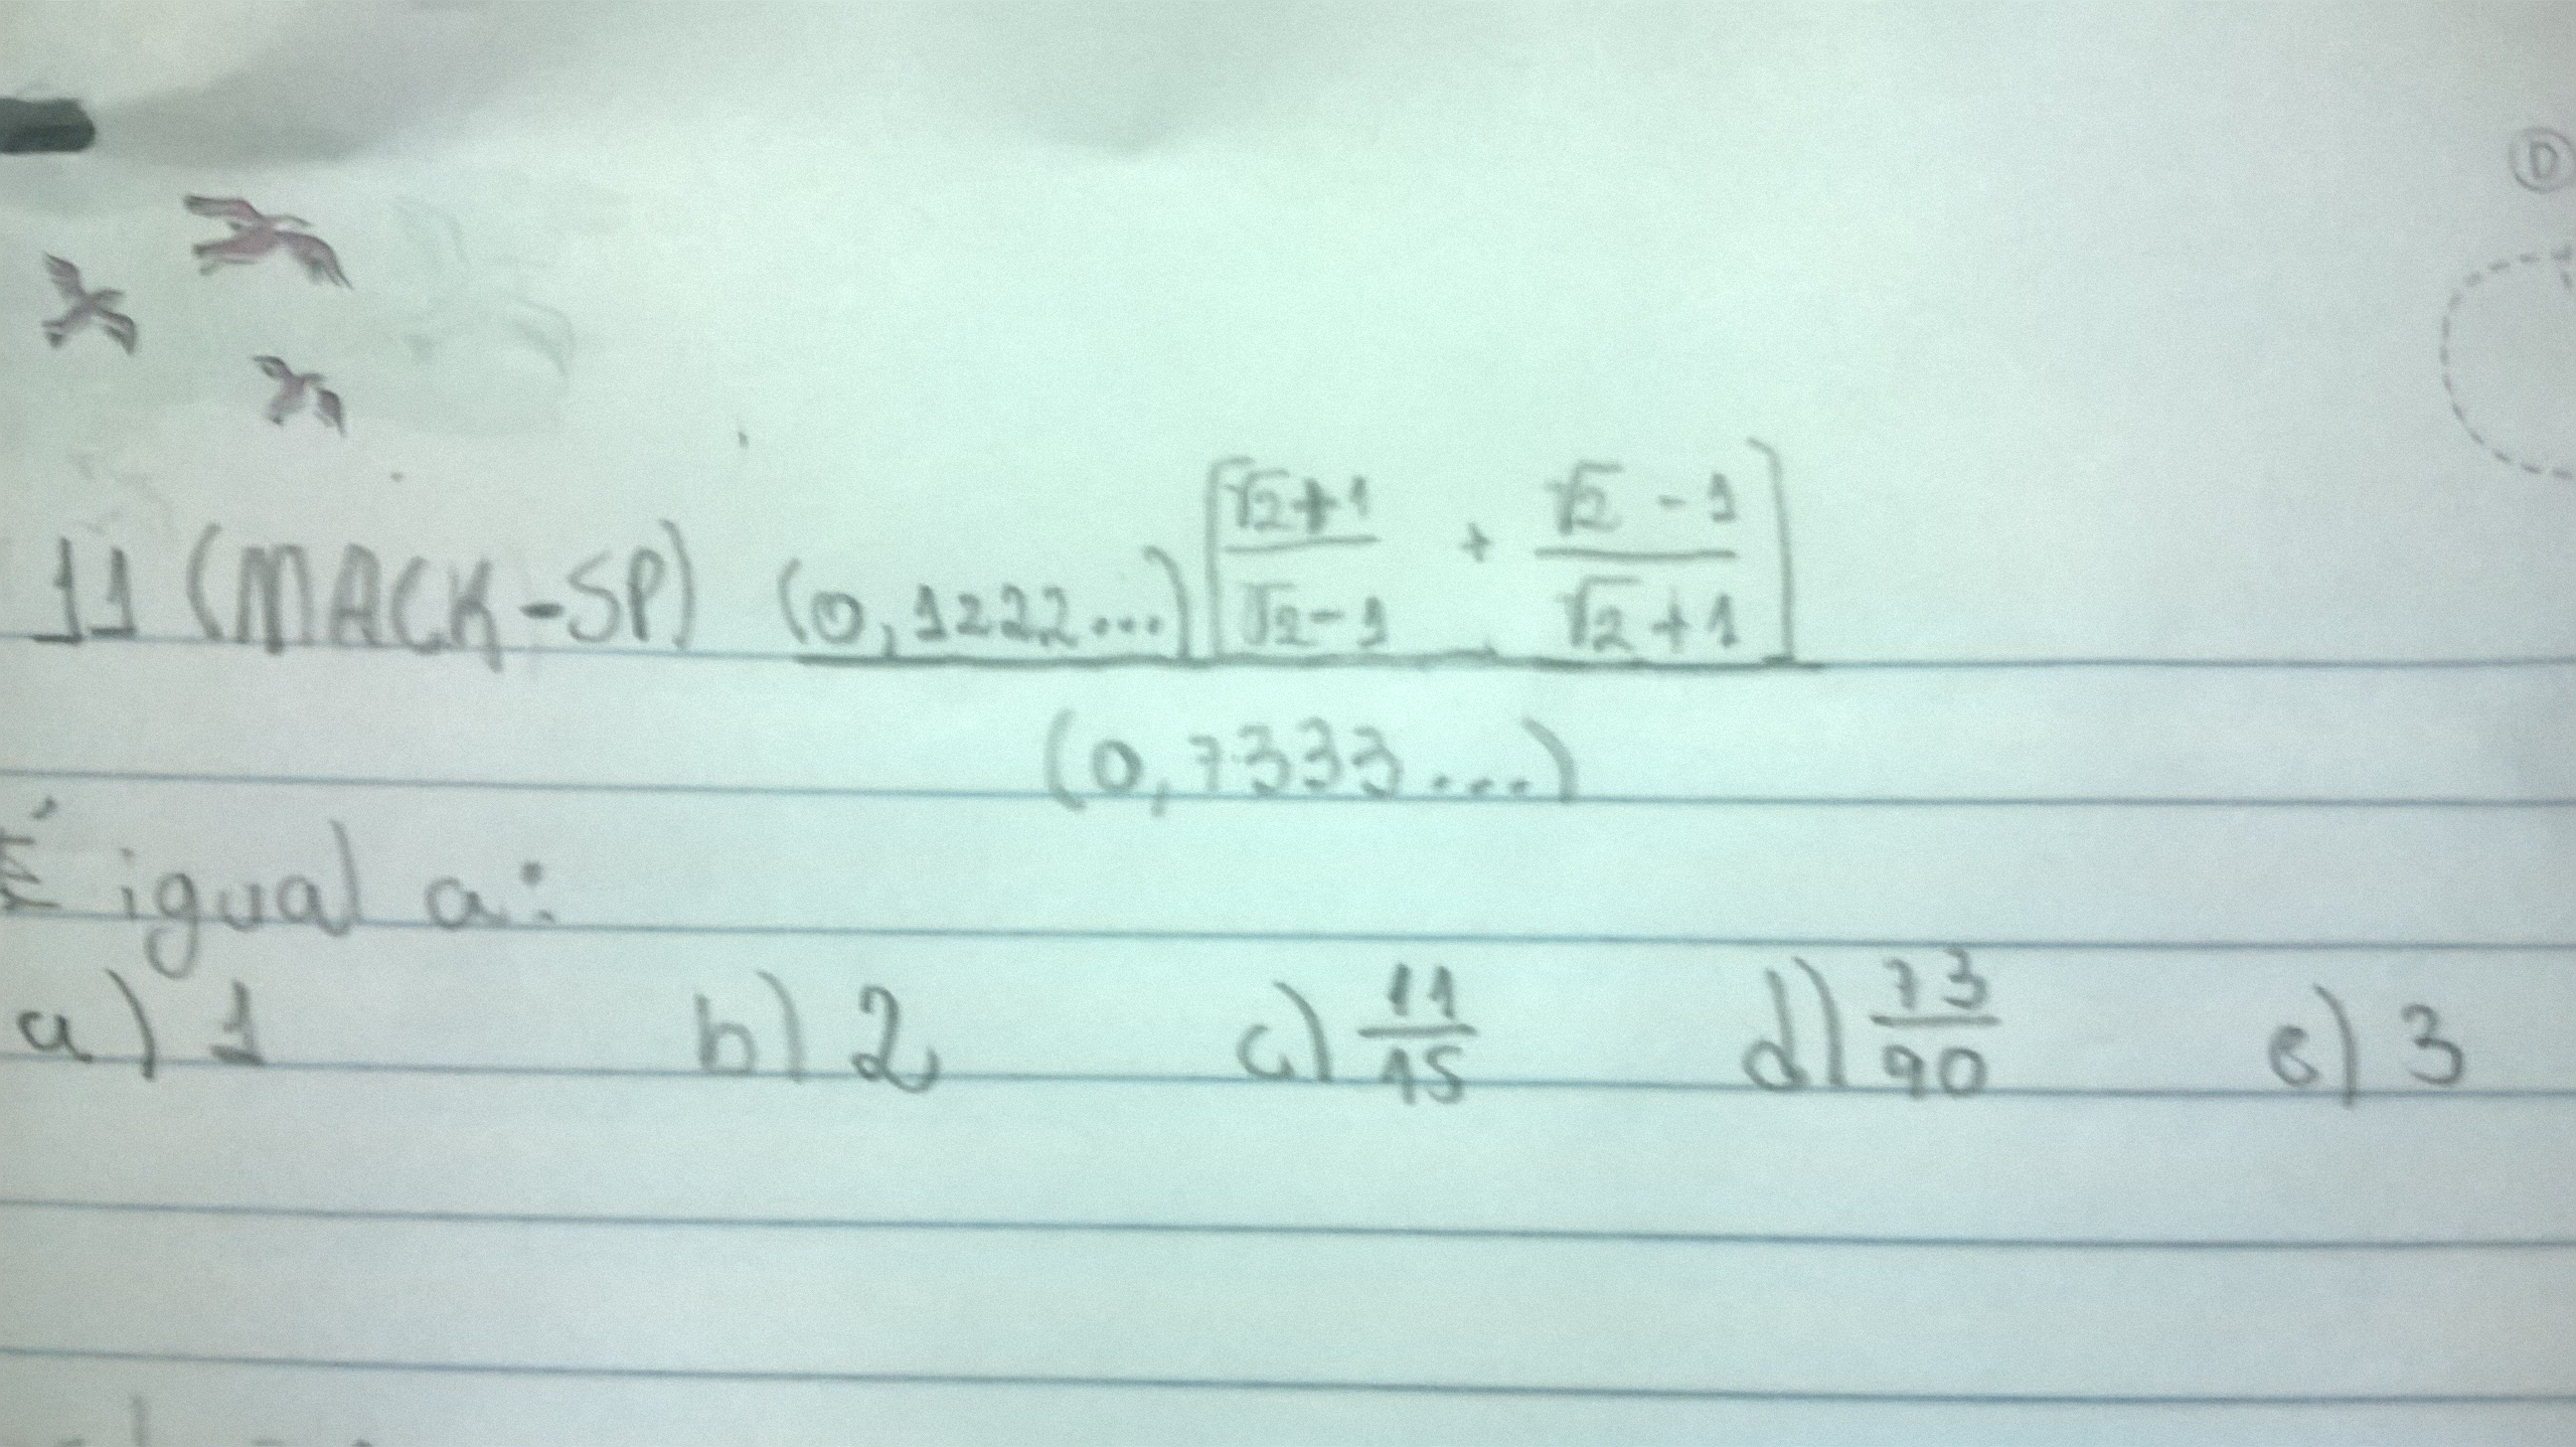 D
11 (MACK-SP) (0,1222...) [ √2+1 / √2-1 + √2 - 1 / √2 + 1 ]
(0,7333...)
É igual a:
a) 1 b) 2 c) 11/15 d) 73/90 e) 3